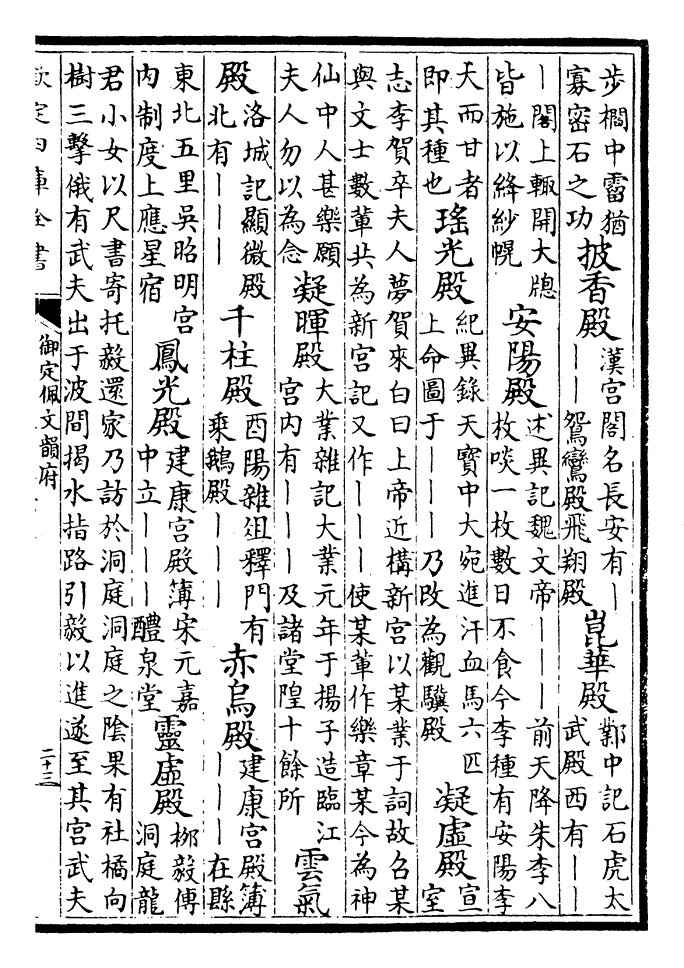 步櫩中霤猶
寡密石之功
披香殿
漢宮閣名長安有｜
｜｜鴛鸞殿飛翔殿
崑華殿
鄴中記石虎太
武殿西有｜｜
｜閣上輙開大牕
皆施以絳紗幌
安陽殿
述異記魏文帝｜｜｜前天降朱李八
枚啖一枚數日不食今李種有安陽李
天而甘者
即其種也
瑤光殿
紀異錄天寶中大宛進汗血馬六匹
上命圖于｜｜｜乃改為觀驥殿
凝虛殿
宣
室
志李賀卒夫人夢賀來白曰上帝近構新宮以某業于詞故召某
與文士數輩共為新宮記又作｜｜｜使某輩作樂章某今為神
仙中人甚樂願
夫人勿以為念
凝暉殿
大業雜記大業元年于揚子造臨江
宮内有｜｜｜及諸堂隍十餘所
雲氣
殿
洛城記顯微殿
北有｜｜｜
千柱殿
酉陽雜俎釋門有
乘鵝殿｜｜｜
赤烏殿
建康宮殿簿
｜｜｜在縣
東北五里吳昭明宮
内制度上應星宿
鳳光殿
建康宮殿簿宋元嘉
中立｜｜｜醴泉堂
靈虛殿
栁毅傳
洞庭龍
君小女以尺書寄托毅還家乃訪於洞庭洞庭之陰果有社橘向
樹三擊俄有武夫出于波間揭水指路引毅以進遂至其宮武夫
欽定四庫全書
御定佩文韻府
二十三